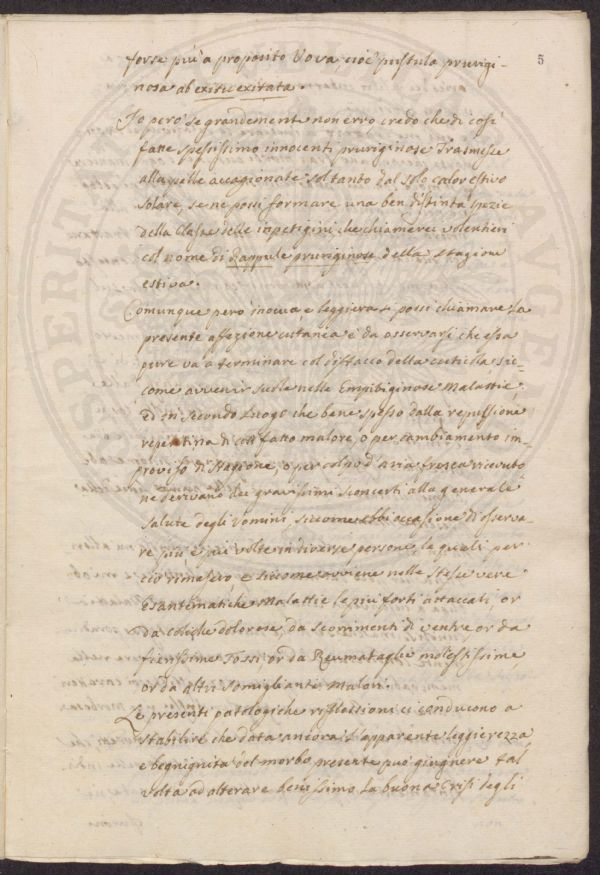 5
forse più a proposito Vova, cioè pustula prurigi-
nosa ab exitu exitata.
Io però se grandemente non erro credo che di così
fatte spessissimo innocenti pruriginose Trasmesse
alla pelle accagionate soltanto dal solo calor estivo
solare, se ne possi formare una ben distinta spezie
della Classe delle impetigini che chiamerei volentieri
col nome di pruriginose della stagione
estiva.
Comunque però inocua, e leggiera si possi chiamare la
presente affezione cutanea è da osservarsi che essa
pure va a terminare col distacco della cuticola sic-
come avvenir suole nelle Malattie,
Ed in secondo Luogo che bene spesso dalla repulsione
repentina di così fatto malore, o per cambiamento im-
proviso di stagione, o per colpo d'aria fresca ricevuto
ne derivano dei gravissimi sconcerti alla generale
salute degli Uomini, siccome ebbi accasione di osserva-
re più e più volte in diverse persone, le quali per
ciò rimasero, e siccome avviene nelle stesse vere
Esantematiche Malattie le più forti attaccati, or
da coliche dolorose, da scorrimenti di ventre, or da
fierissime Tossi, or da Reumatagie molestissime
or da altri somiglianti Malori.
Le presenti patologiche riflessioni ci conducono a
stabilire che data ancora l'apparente leggierezza
e begnignità del morbo presente può giugnere tal
volta ad alterare benissimo la buona Crisi degli